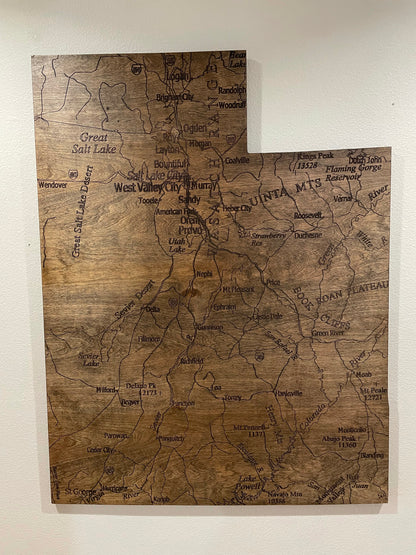 Bear
Lake
Logan
Randolph
Brigham City
Woodruff
WASATCH RANGE
Ogden
Great
Salt Lake
Layton
Morgan
Bountiful
Coalville
Kings Peak
13528
Dutch John
Flaming Gorge
Reservoir
Salt Lake City
Wendover
80
West Valley City
Murray
UINTA MTS
Great Salt Lake Desert
Tooele
Sandy
Vernal
River
American Fork
Heber City
Roosevelt
Orem
Provo
Strawberry
Res
Duchesne
Utah
Lake
Green
White
R
Nephi
Price
ROAN PLATEAU
BOOK CLIFFS
Sevier Desert
Mt Pleasant
Delta
Ephraim
Castle Dale
Fillmore
Gunnison
Green River
San Rafael R
Sevier
Lake
Richfield
River
Moab
Milford
Delano Pk
12173
Loa
Torrey
Hanksville
Mt Peale
12721
Beaver
Junction
Colorado
Parowan
Sevier
Panguitch
Mt Ellen
11371
Monticello
Abajo Peak
11360
Cedar City
Blanding
Lake
Powell
San
Juan
St George
Virgin
Hurricane
River
Kanab
Navajo Mtn
10388